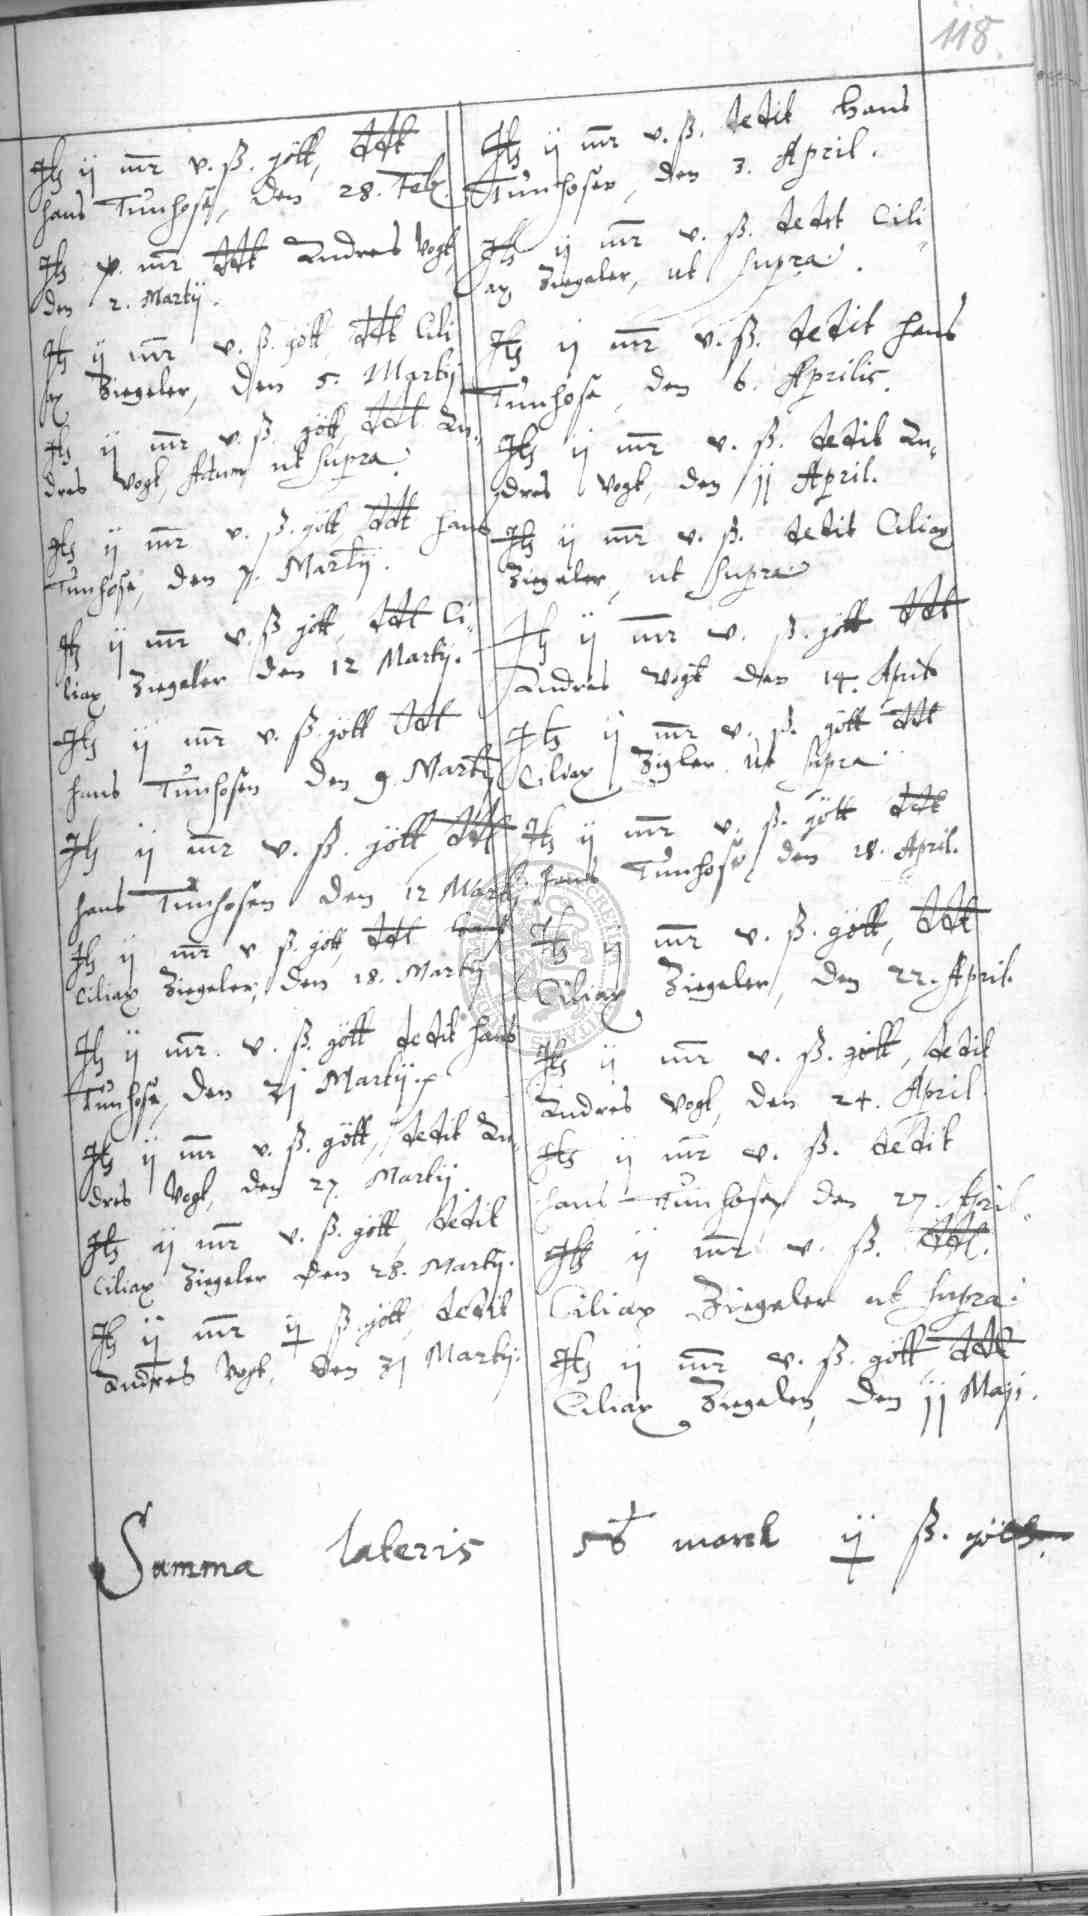 118.
Jtz ij mr v. ß. gött, ddt
Hans Tünhose, den 28. Feb.
Jtz v. mr ddt Andres Vogt,
den 2. Martij.
Jtz ij mr v. ß. gött, ddt Cili
ax Ziegeler, den 5. Martij
Jtz ij mr v. ß. gött, ddt An-
dres Vogt, Actum ut supra
Jtz ij mr v. ß. gött, ddt Hans
Tünhose, den 7. Martij.
Jtz ij mr v. ß gött, ddt Ci-
liax Ziegeler den 12 Martij.
Jtz ij mr v. ß. gött ddt
Hans Tünhosen den 9. Martij
Jtz ij mr v. ß. gött, ddt
Hans Tünhosen den 12 Martij
Jtz ij mr v ß. gött, ddt
Ciliax Ziegeler, den 18. Martij
Jtz ij mr. v. ß. gött dedit Hans
Tünhose, den 21 Martij.
Jtz ij mr v. ß. gött, dedit An-
dres Vogt, den 27. Martij.
Jtz ij mr v. ß. gött, dedit
Ciliax Ziegeler den 28. Martij.
Jtz ij mr ij ß. gött, dedit
Andres Vogt, den 31 Martij.
Jtz ij mr v. ß. dedit Hans
Tünhosen, den 3. April.
Jtz ij mr v. ß. dedit Cili-
ax Ziegeler, ut supra.
Jtz ij mr v. ß. dedit Hans
Tünhose, den 6. Aprilis.
Jtz ij mr v. ß. dedit An-
dres Vogt, den 11 April.
Jtz ij mr v. ß. dedit Ciliax
Ziegeler, ut supra
Jtz ij mr v. ß. gött ddt
Andres Vogt den 14. April
Jtz ij mr v. ß. gött ddt
Ciliax Zigler ut supra
Jtz ij mr v. ß. gött ddt
Hans Tünhose den 18. April.
Jtz ij mr v. ß. gött, ddt
Ciliax Ziegeler, den 22. April.
Jtz ij mr v. ß. gött, dedit
Andres Vogt, den 24. April.
Jtz ij mr v. ß. dedit
Hans Tünhosen den 27. April.
Jtz ij mr v. ß. ddt.
Ciliax Ziegeler ut supra.
Jtz ij mr v. ß. gött, ddt
Ciliax Ziegeler, den 11 Maji.
Summa lateris 56 marck ij ß. gött.